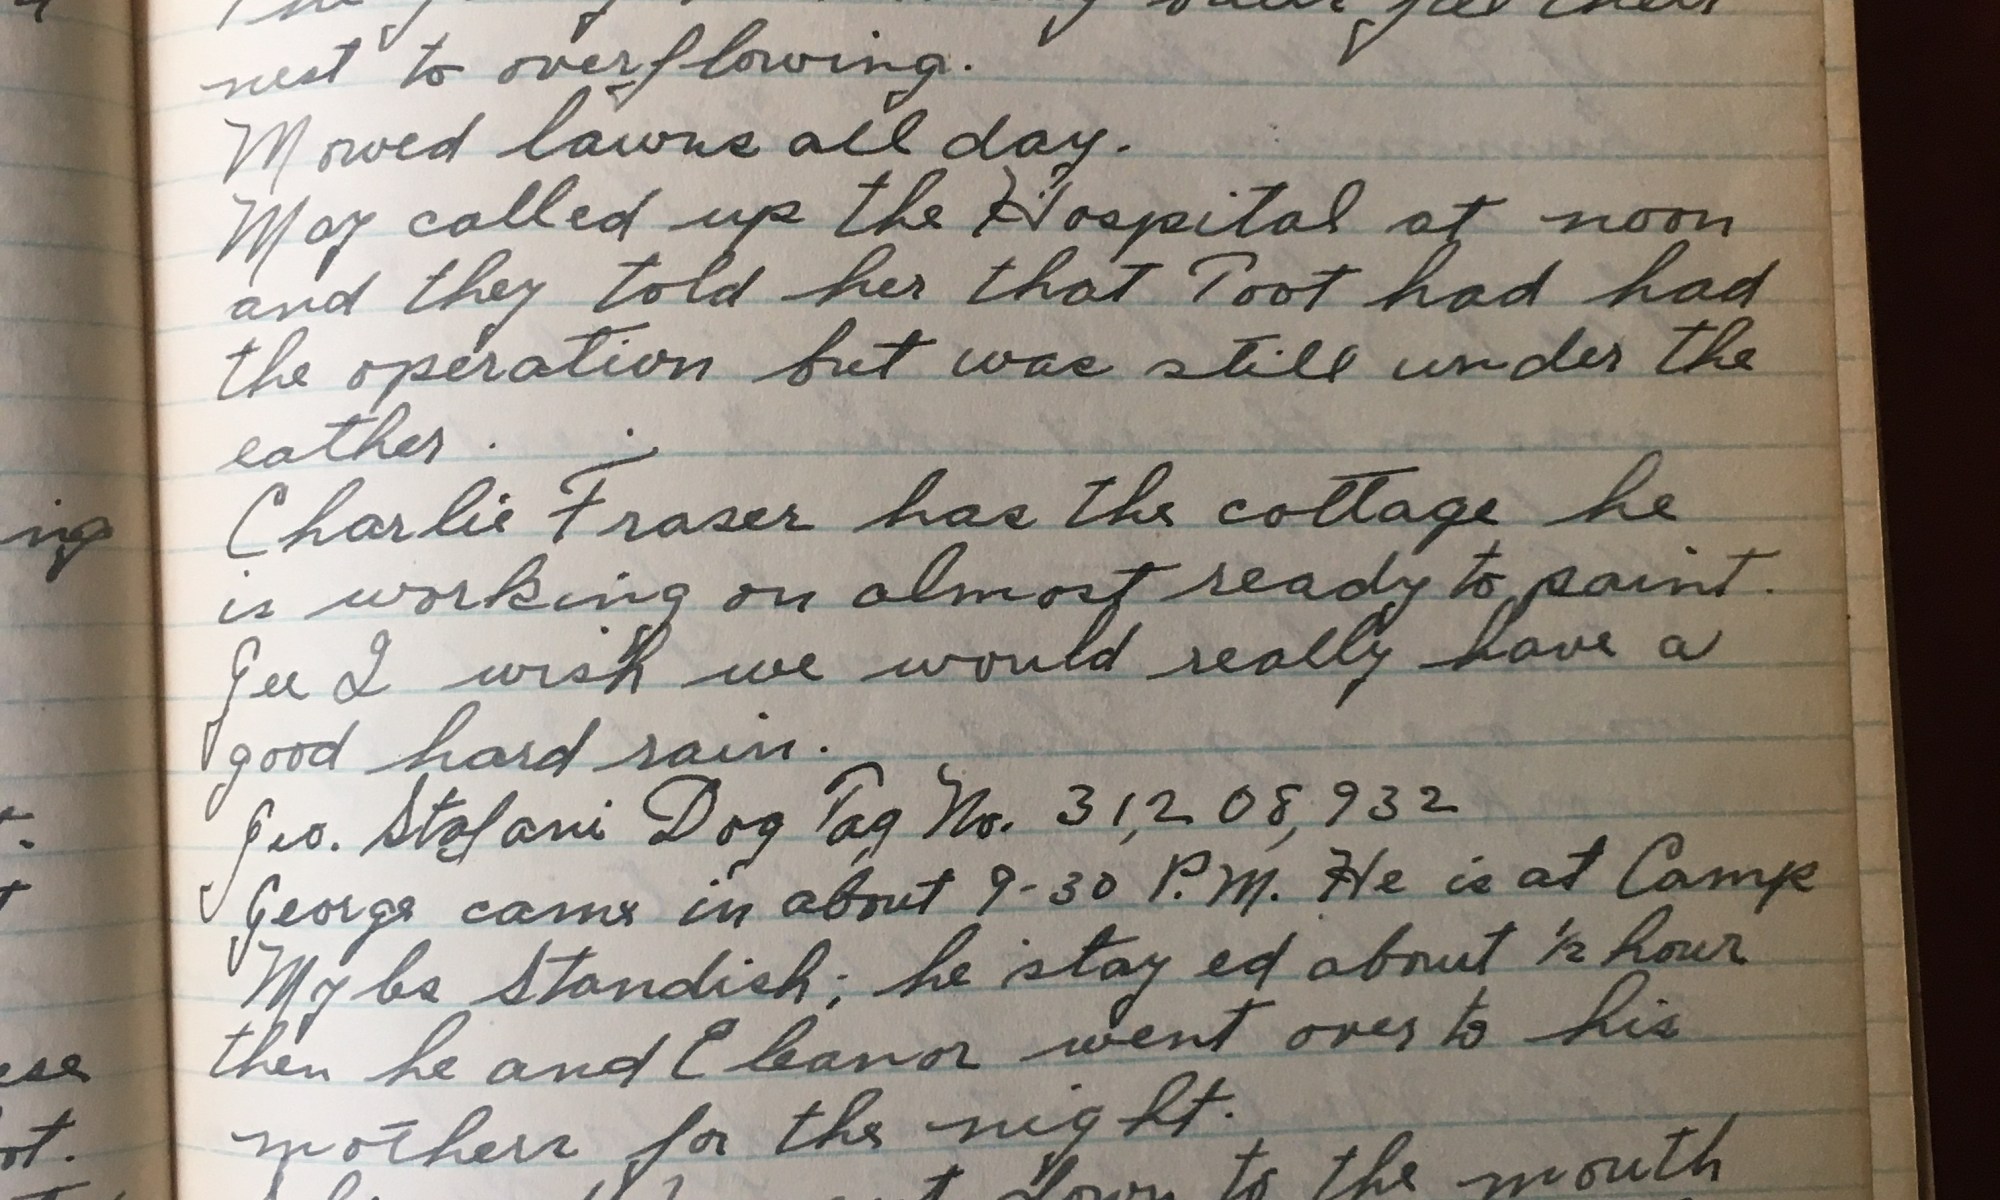 nest to overflowing.
Mowed lawns all day.
May called up the Hospital at noon
and they told her that Toot had had
the operation but was still under the
eather.
Charlie Fraser has the cottage he
is working on almost ready to paint.
Gee I wish we would really have a
good hard rain.
Geo. Stafani Dog Tag No. 31,208,932
George came in about 9-30 P.M. He is at Camp
Mybs Standish; he stayed about 1/2 hour
then he and Eleanor went over to his
mothers for the night.
down to the mouth
ing